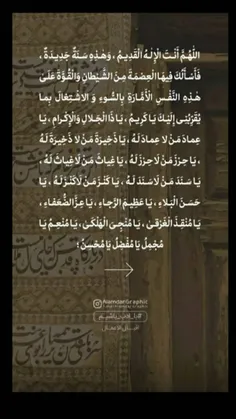 اللّهُمَّ أَنْتَ الْإِلٰهُ الْقَدِيمُ ، وَهٰذِهِ سَنَةٌ جَدِيدَةٌ ،
فَأَسْأَلُكَ فِيهَا الْعِصْمَةَ مِنَ الشَّيْطانِ وَالْقُوَّةَ عَلَىٰ
هٰذِهِ النَّفْسِ الْأَمَّارَةِ بِالسُّوءِ وَ الاشْتِغَالَ بِمَا
يُقَرِّبُنِي إِلَيْكَ يَا كَرِيمُ ، يَا ذَا الْجَلالِ وَالْإِكْرامِ ، يَا
عِمادَ مَنْ لَا عِمادَ لَهُ ، يَا ذَخِيرَةَ مَنْ لَا ذَخِيرَةَ لَهُ
، يَا حِرْزَ مَنْ لَا حِرْزَ لَهُ ، يَا غِياثَ مَنْ لَا غِياثَ لَهُ ،
يَا سَنَدَ مَنْ لَا سَنَدَ لَهُ ، يَا كَنْزَ مَنْ لَا كَنْزَ لَهُ ، يَا
حَسَنَ الْبَلاءِ ، يَا عَظِيمَ الرَّجاءِ ، يَا عِزَّ الضُّعَفاءِ ،
يَا مُنْقِذَ الْغَرْقىٰ ، يَا مُنْجِيَ الْهَلْكىٰ ، يَا مُنْعِمُ يَا
مُجْمِلُ يَا مُفْضِلُ يَا مُحْسِنُ ؛
AlamdarGraphic